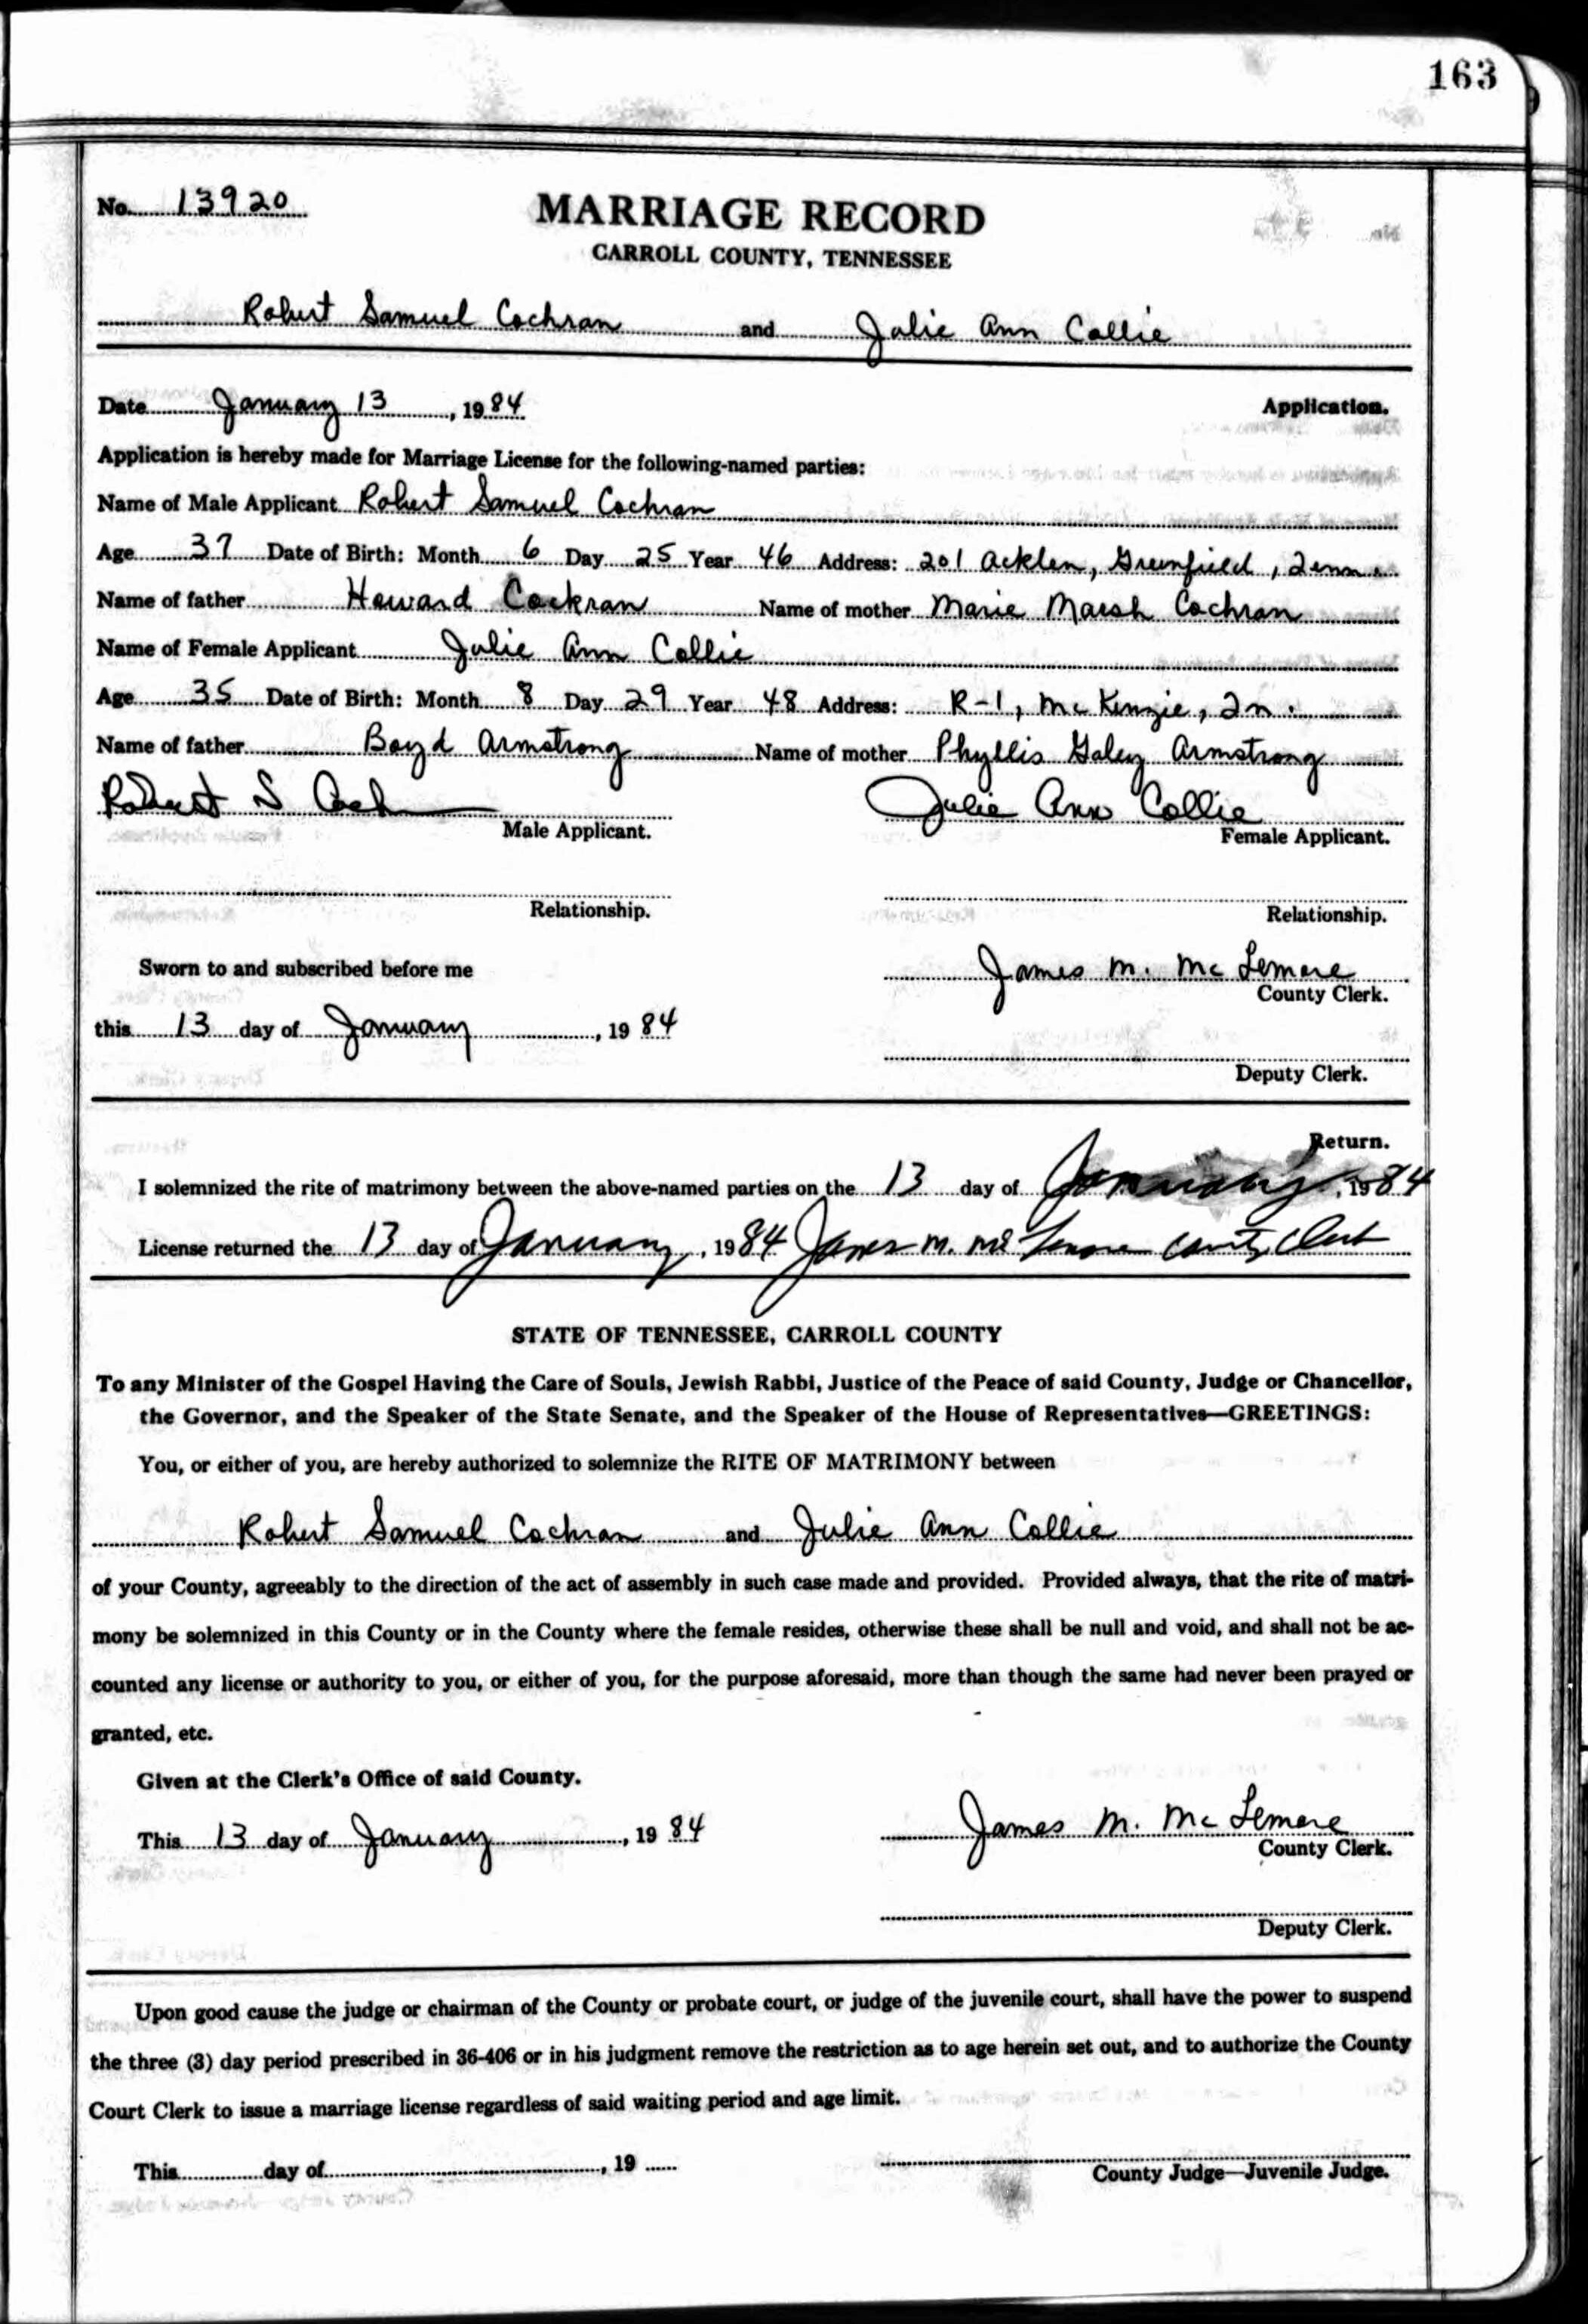 163
No. 13920
MARRIAGE RECORD
CARROLL COUNTY, TENNESSEE
Robert Samuel Cochran and Julie Ann Collie
Date January 13, 1984 Application.
Application is hereby made for Marriage License for the following-named parties:
Name of Male Applicant Robert Samuel Cochran
Age 37 Date of Birth: Month 6 Day 25 Year 46 Address: 201 Acklen, Greenfield, Tenn.
Name of father Howard Cockran Name of mother Marie Marsh Cochran
Name of Female Applicant Julie Ann Collie
Age 35 Date of Birth: Month 8 Day 29 Year 48 Address: R-1, McKenzie, Tn.
Name of father Boyd Armstrong Name of mother Phyllis Galey Armstrong
Robert S Coch Julie Ann Collie
Male Applicant. Female Applicant.
Relationship. Relationship.
Sworn to and subscribed before me James M. McLemore
County Clerk.
this 13 day of January, 1984
Deputy Clerk.
Return.
I solemnized the rite of matrimony between the above-named parties on the 13 day of January, 1984
License returned the 13 day of January, 1984 James M. McLemore County Clerk
STATE OF TENNESSEE, CARROLL COUNTY
To any Minister of the Gospel Having the Care of Souls, Jewish Rabbi, Justice of the Peace of said County, Judge or Chancellor,
the Governor, and the Speaker of the State Senate, and the Speaker of the House of Representatives—GREETINGS:
You, or either of you, are hereby authorized to solemnize the RITE OF MATRIMONY between
Robert Samuel Cochran and Julie Ann Collie
of your County, agreeably to the direction of the act of assembly in such case made and provided. Provided always, that the rite of matri-
mony be solemnized in this County or in the County where the female resides, otherwise these shall be null and void, and shall not be ac-
counted any license or authority to you, or either of you, for the purpose aforesaid, more than though the same had never been prayed or
granted, etc.
Given at the Clerk's Office of said County.
This 13 day of January, 1984 James M. McLemore
County Clerk.
Deputy Clerk.
Upon good cause the judge or chairman of the County or probate court, or judge of the juvenile court, shall have the power to suspend
the three (3) day period prescribed in 36-406 or in his judgment remove the restriction as to age herein set out, and to authorize the County
Court Clerk to issue a marriage license regardless of said waiting period and age limit.
This day of , 19
County Judge—Juvenile Judge.